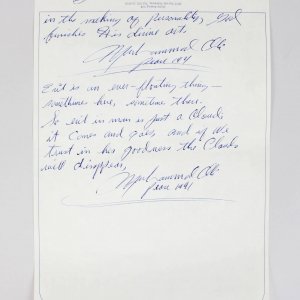 in the making of personality, God
furnishes His divine art.
Muhammad Ali
June 1991
Evil is an ever-floating thing—
sometimes here, sometime there.
So evil in man is just a Cloud
it comes and goes and if we
trust in his goodness the Clouds
will disappear.
Muhammad Ali